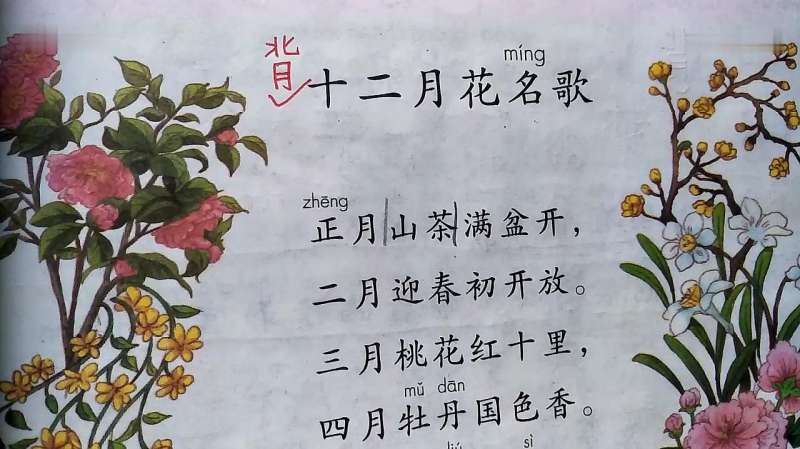 背
míng
十二月花名歌
zhēng
正月山茶满盆开，
二月迎春初开放。
三月桃花红十里，
mǔ dān
四月牡丹国色香。
sì